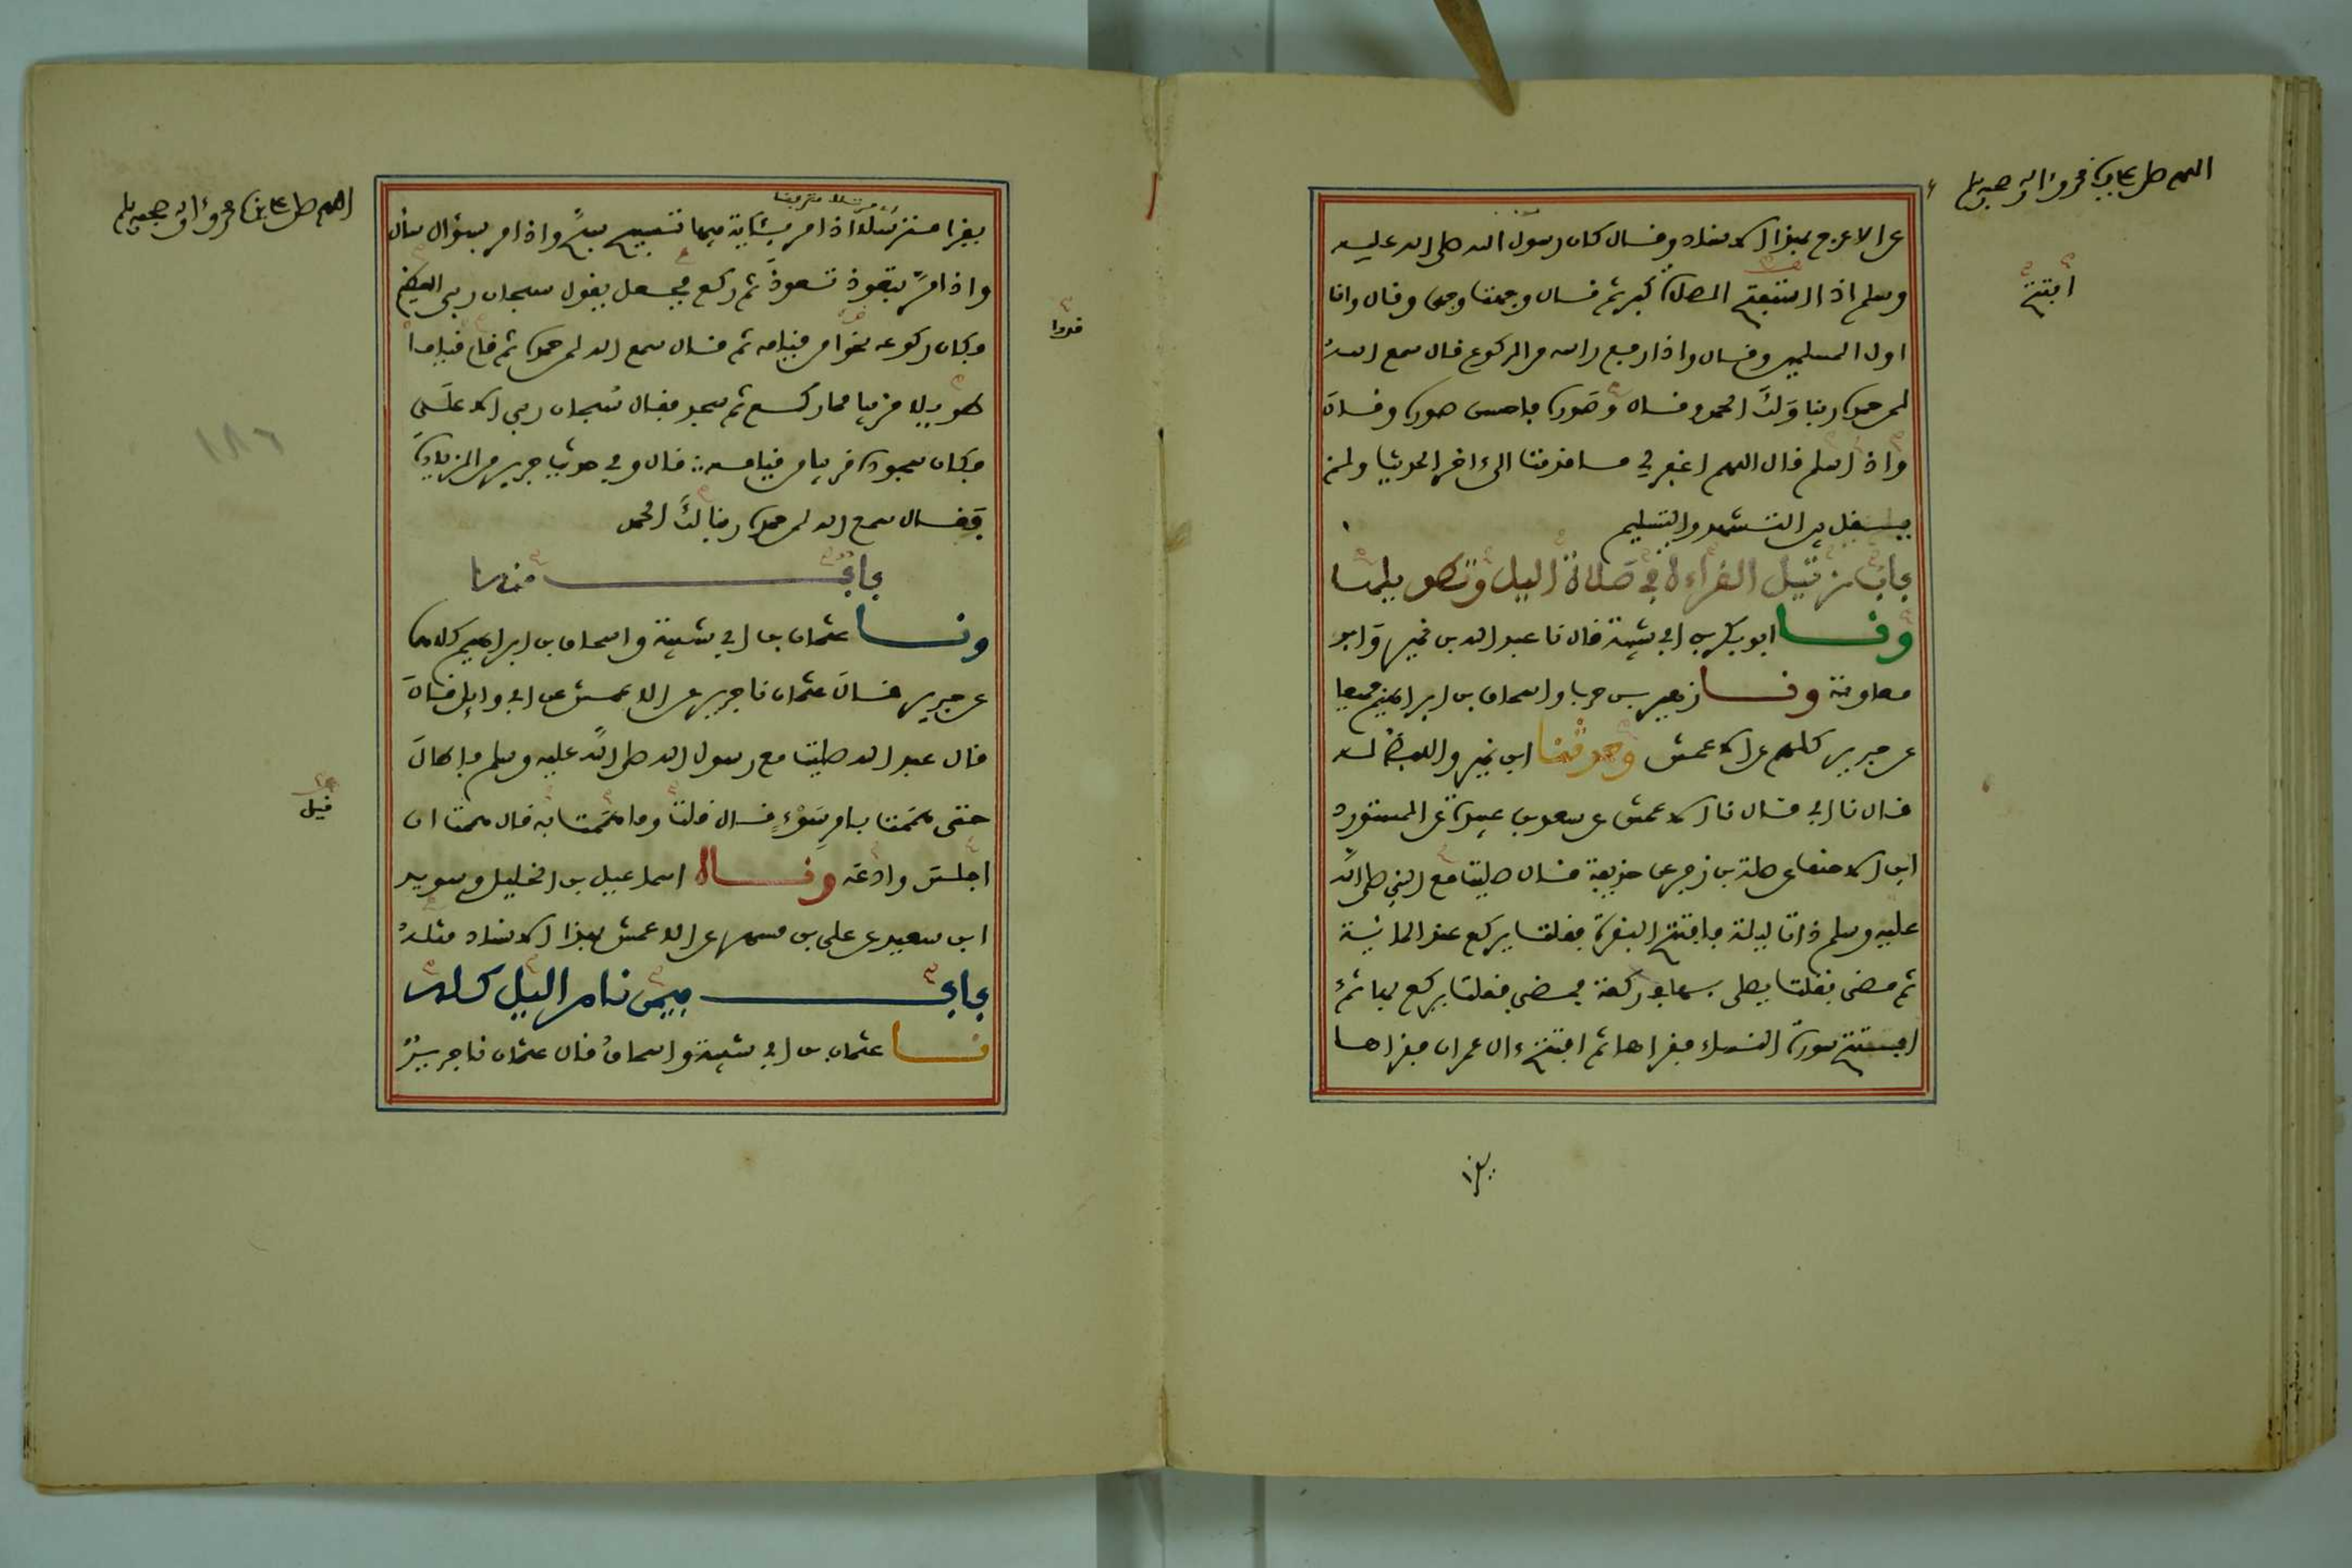 اللهم صل على سيدنا محمد وآله وصحبه وسلم
عن الاعرج بهذا الاسناد وقال كان رسول الله صلى الله عليه
وسلم اذا استفتح الصلاة كبر ثم قال وجهت وجهي وقال وانا
افتتح
اول المسلمين وقال واذا رفع راسه من الركوع قال سمع الله
لمن حمده ربنا ولك الحمد وقال وصوره فاحسن صوره وقال
واذا سلم قال اللهم اغفر لي ما قدمت الى ءاخر الحديث ولم
يقل بين التشهد والتسليم
باب ترتيل القراءة في صلاة اليل وتطويلها
ونا ابو بكر بن ابي شيبة قال نا عبد الله بن نمير وابو
معاوية ونا زهير بن حرب واسحاق بن ابراهيم جميعا
عن جرير كلهم عن الاعمش وحدثنا ابن نمير واللفظ له
قال نا ابي قال نا الاعمش عن سعد بن عبيدة عن المستورد
ابن الاحنف عن صلة بن زفر عن حذيفة قال صليت مع النبي صلى الله
عليه وسلم ذات ليلة فافتتح البقرة فقلت يركع عند المائية
ثم مضى فقلت يصلي بها في ركعة فمضى فقلت يركع بها ثم
افتتح سورة النساء فقراها ثم افتتح ءال عمران فقراها
يقرا
اللهم صل على سيدنا محمد وآله وصحبه وسلم
يقرا مترسلا اذا مر بئاية فيها تسبيح سبح واذا مر بسؤال سأل
واذا مر بتعوذ تعوذ ثم ركع فجعل يقول سبحان ربي العظيم
فكان ركوعه نحوا من قيامه ثم قال سمع الله لمن حمده ثم قام قياما
طويلا قريبا مما ركع ثم سجد فقال سبحان ربي الاعلى
فكان سجوده قريبا من قيامه قال وفي حديث جرير من الزيادة
فقال سمع الله لمن حمده ربنا لك الحمد
باب منه
ونا عثمان بن ابي شيبة واسحاق بن ابراهيم كلاهما
عن جرير قال عثمان نا جرير عن الاعمش عن ابي وايل قال
قال عبد الله صليت مع رسول الله صلى الله عليه وسلم فاطال
حتى هممت بامر سوء قال قلت وما هممت به قال هممت ان
قيل
اجلس وادعه وناه اسماعيل بن الخليل وسويد
ابن سعيد عن علي بن مسهر عن الاعمش بهذا الاسناد مثله
باب فيمن نام اليل كله
نا عثمان بن ابي شيبة واسحاق قال عثمان نا جرير